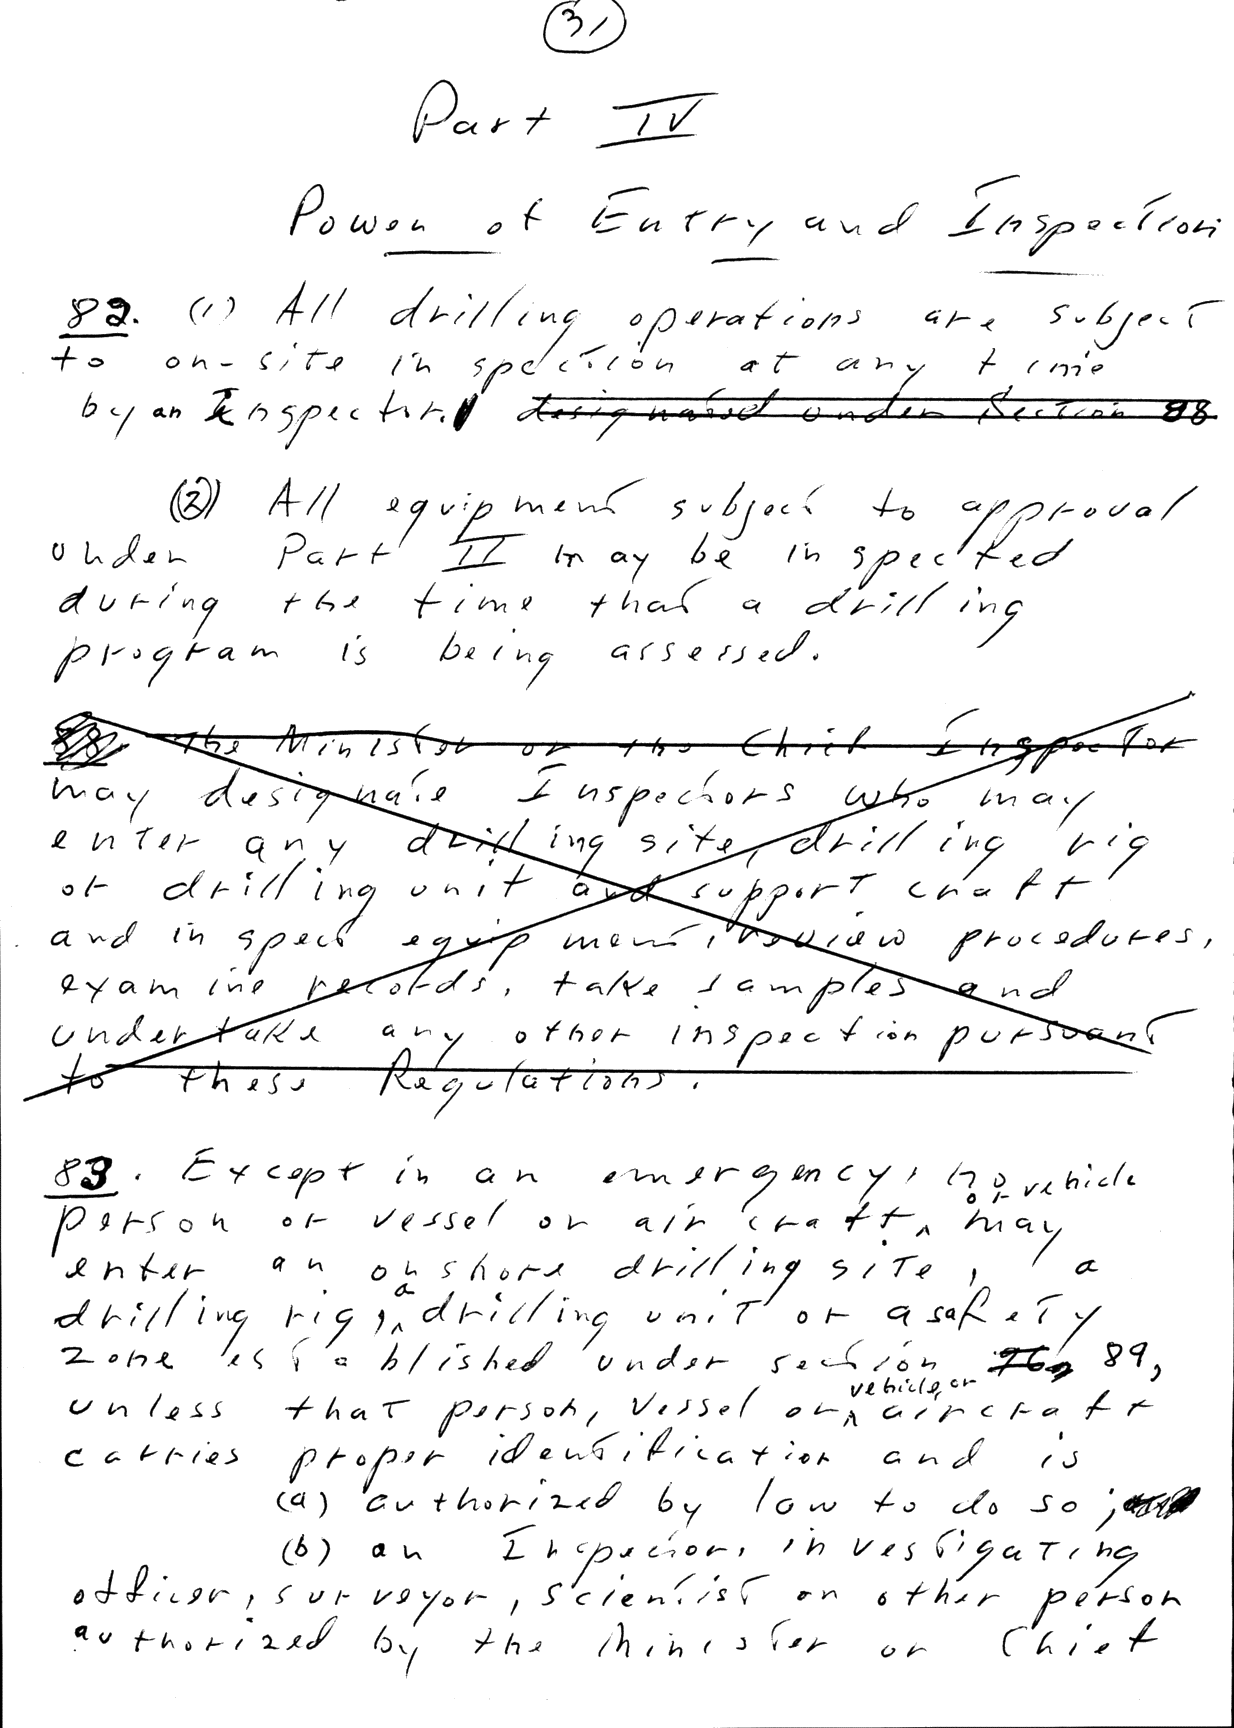 31
Part IV
Power of Entry and Inspection
82. (1) All drilling operations are subject
to on-site inspection at any time
by an Inspector. designated under Section 88
(2) All equipment subject to approval
under Part II may be inspected
during the time that a drilling
program is being assessed.
88 The Minister or the Chief Inspector
may designate Inspectors who may
enter any drilling site, drilling rig
or drilling unit and support craft
and inspect equipment, review procedures,
examine records, take samples and
undertake any other inspection pursuant
to these Regulations.
83. Except in an emergency, no
or vehicle
person or vessel or aircraft ^ may
enter an onshore drilling site, a
a
drilling rig, ^ drilling unit or a safety
zone established under section 76, 89,
vehicle, or
unless that person, vessel or ^ aircraft
carries proper identification and is
(a) authorized by law to do so;
(b) an Inspector, investigating
officer, surveyor, scientist or other person
authorized by the Minister or Chief